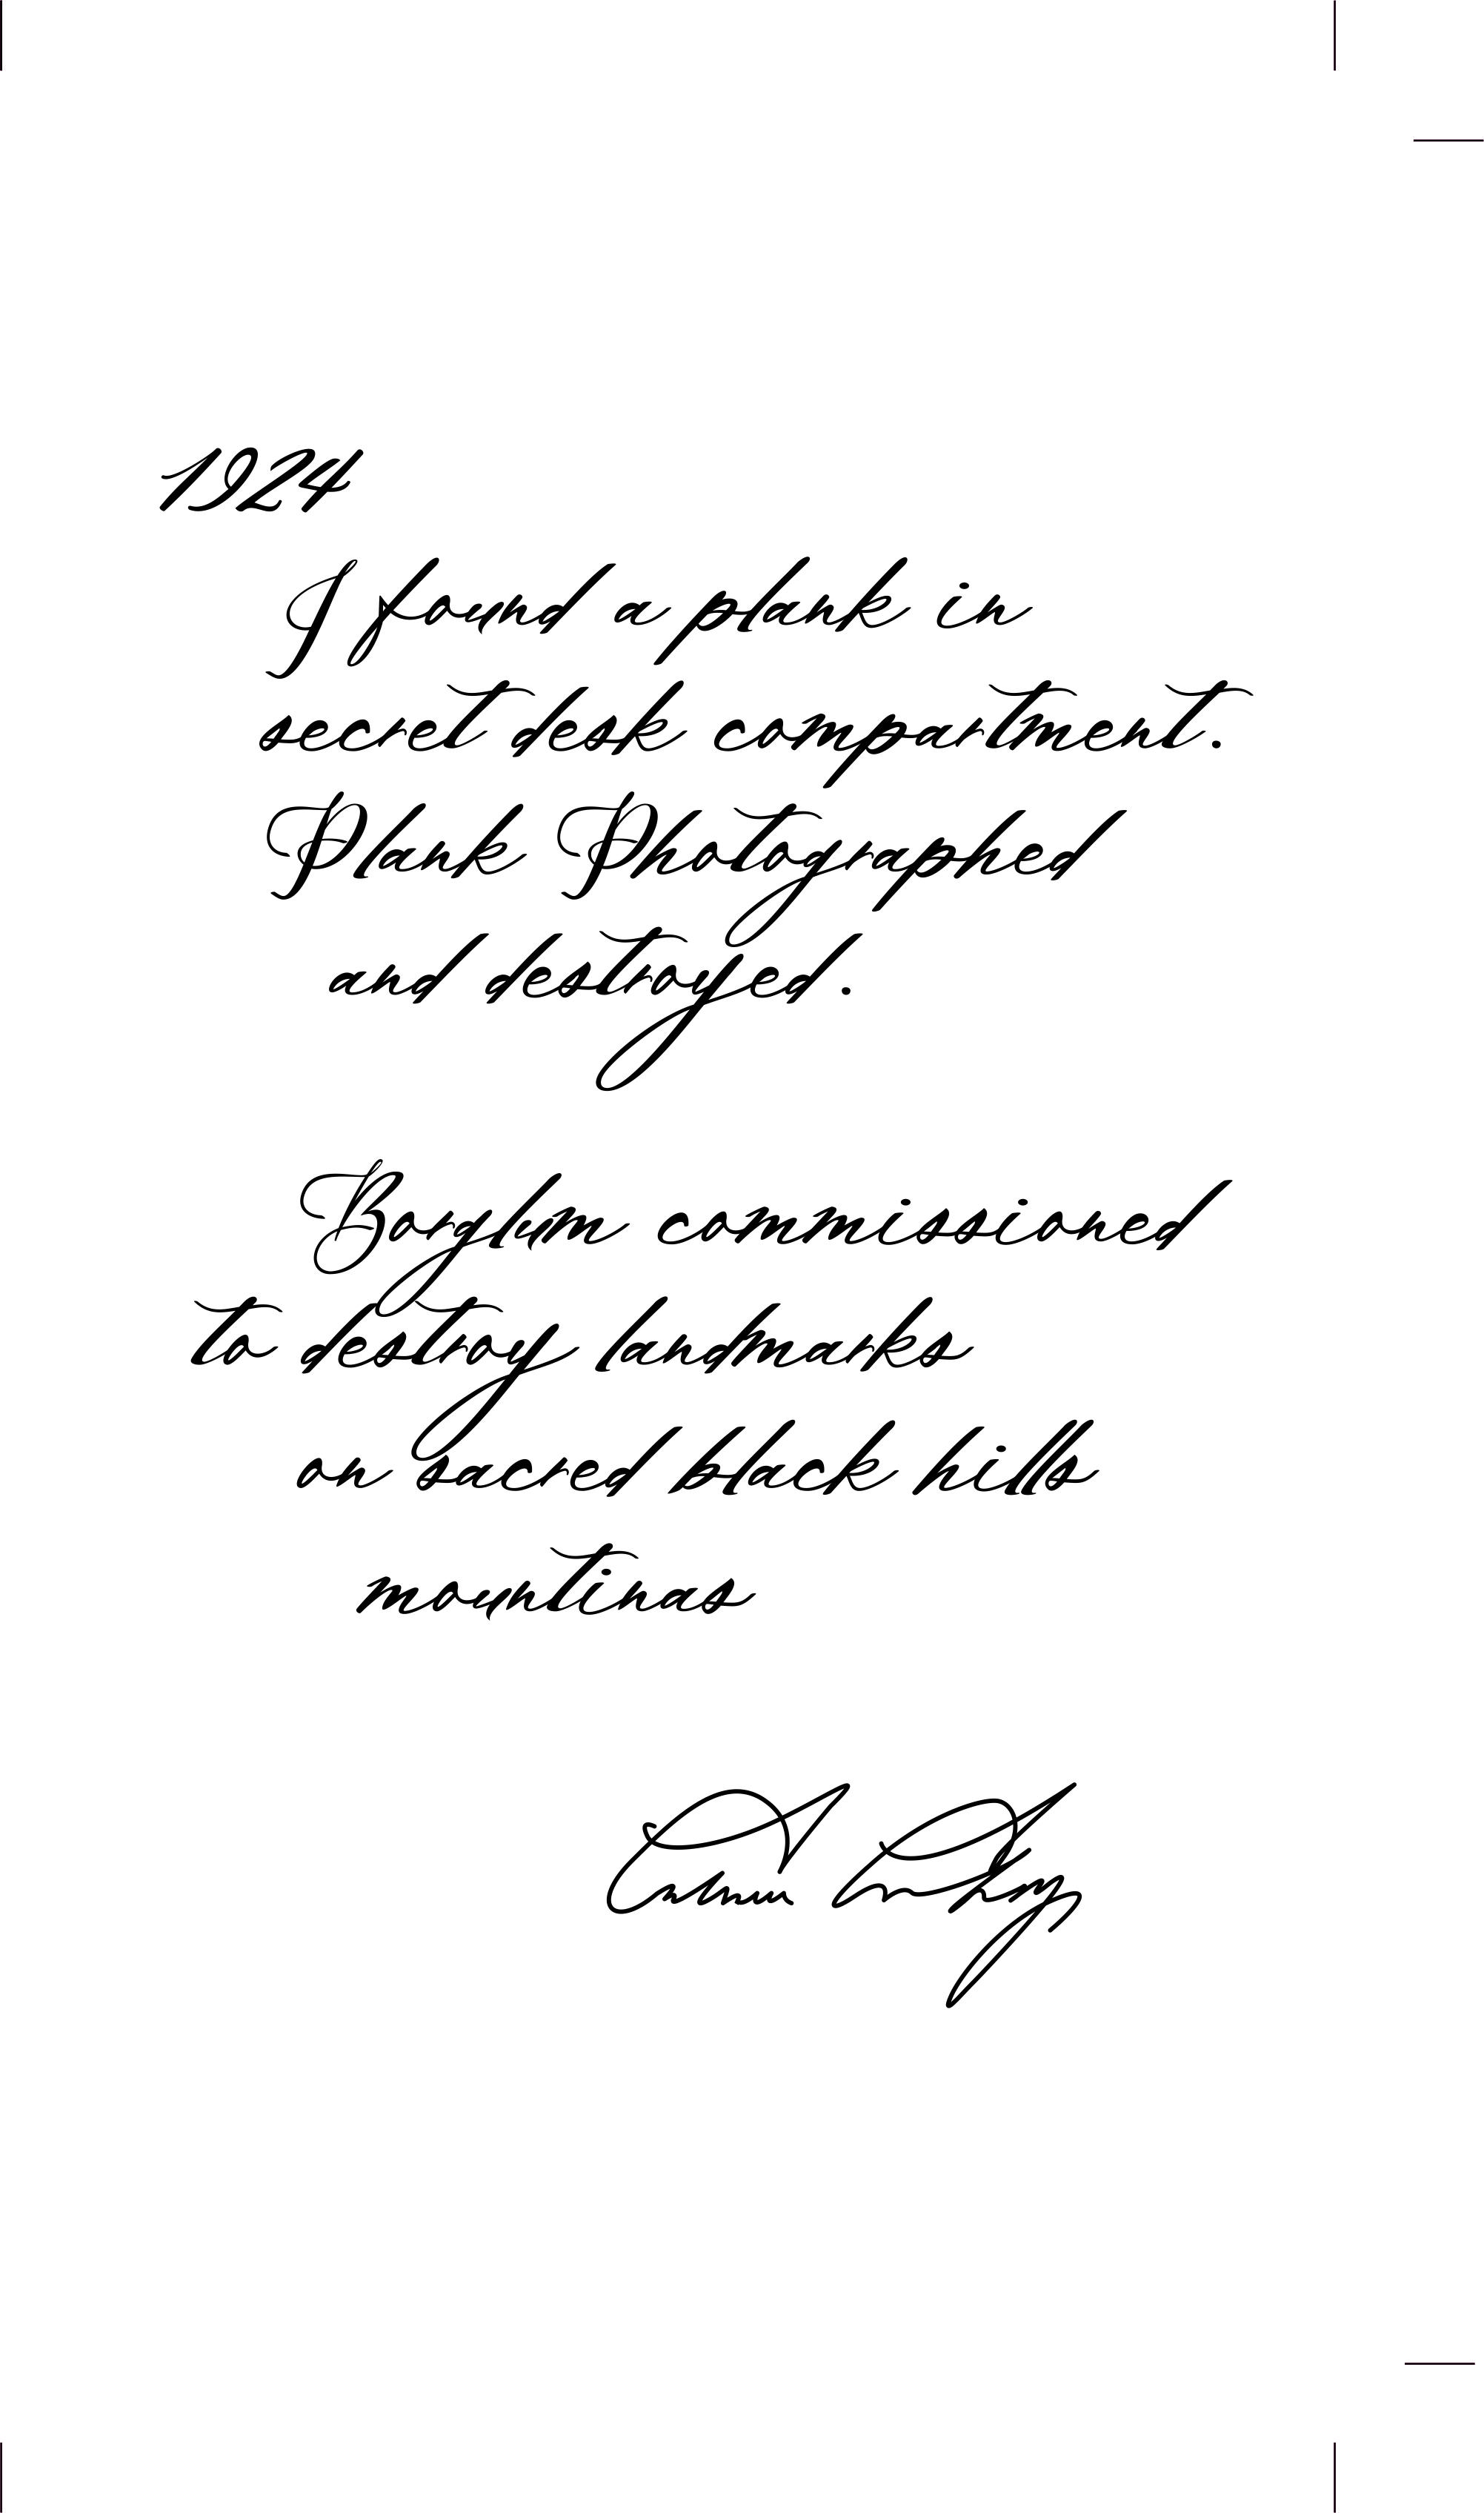 1924
I found a plank in
secret desk compartment.
Plank Photographed
and destroyed.
Borglum commissioned
to destroy landmarks
on sacred black hills
mountians